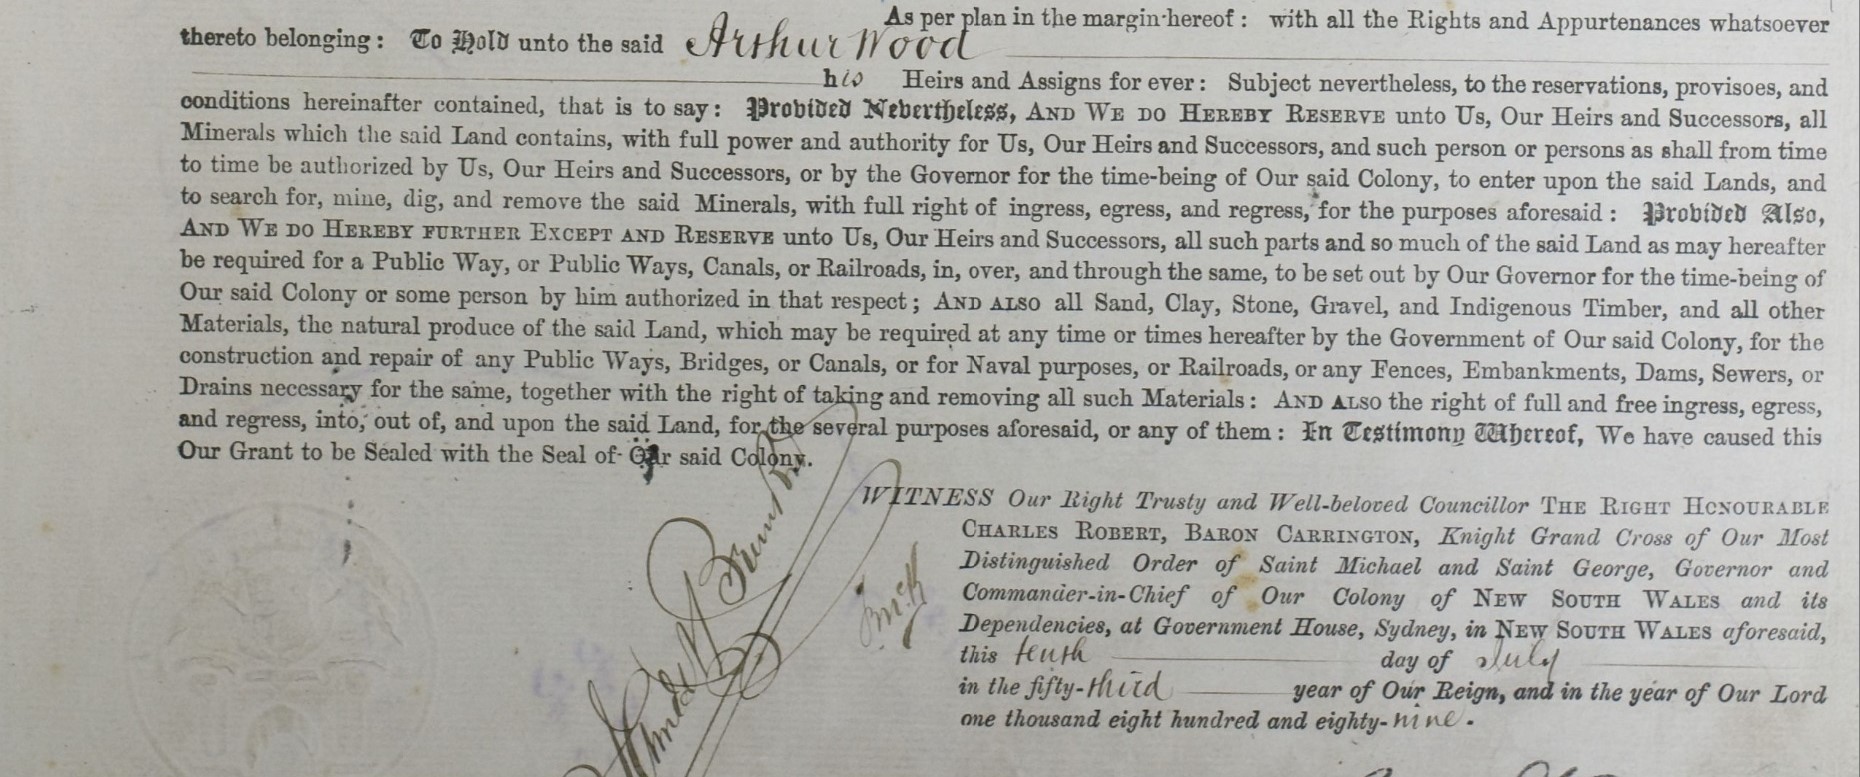 As per plan in the margin hereof : with all the Rights and Appurtenances whatsoever
thereto belonging : To Hold unto the said Arthur Wood
his Heirs and Assigns for ever : Subject nevertheless, to the reservations, provisoes, and
conditions hereinafter contained, that is to say : Provided Nevertheless, AND WE DO HEREBY RESERVE unto Us, Our Heirs and Successors, all
Minerals which the said Land contains, with full power and authority for Us, Our Heirs and Successors, and such person or persons as shall from time
to time be authorized by Us, Our Heirs and Successors, or by the Governor for the time-being of Our said Colony, to enter upon the said Lands, and
to search for, mine, dig, and remove the said Minerals, with full right of ingress, egress, and regress, for the purposes aforesaid : Provided Also,
AND WE DO HEREBY FURTHER EXCEPT AND RESERVE unto Us, Our Heirs and Successors, all such parts and so much of the said Land as may hereafter
be required for a Public Way, or Public Ways, Canals, or Railroads, in, over, and through the same, to be set out by Our Governor for the time-being of
Our said Colony or some person by him authorized in that respect ; AND ALSO all Sand, Clay, Stone, Gravel, and Indigenous Timber, and all other
Materials, the natural produce of the said Land, which may be required at any time or times hereafter by the Government of Our said Colony, for the
construction and repair of any Public Ways, Bridges, or Canals, or for Naval purposes, or Railroads, or any Fences, Embankments, Dams, Sewers, or
Drains necessary for the same, together with the right of taking and removing all such Materials : AND ALSO the right of full and free ingress, egress,
and regress, into, out of, and upon the said Land, for the several purposes aforesaid, or any of them : In Testimony Whereof, We have caused this
Our Grant to be Sealed with the Seal of Our said Colony.
WITNESS Our Right Trusty and Well-beloved Councillor THE RIGHT HONOURABLE
CHARLES ROBERT, BARON CARRINGTON, Knight Grand Cross of Our Most
Distinguished Order of Saint Michael and Saint George, Governor and
Commander-in-Chief of Our Colony of NEW SOUTH WALES and its
Dependencies, at Government House, Sydney, in NEW SOUTH WALES aforesaid,
this tenth day of July
in the fifty-third year of Our Reign, and in the year of Our Lord
one thousand eight hundred and eighty-nine.